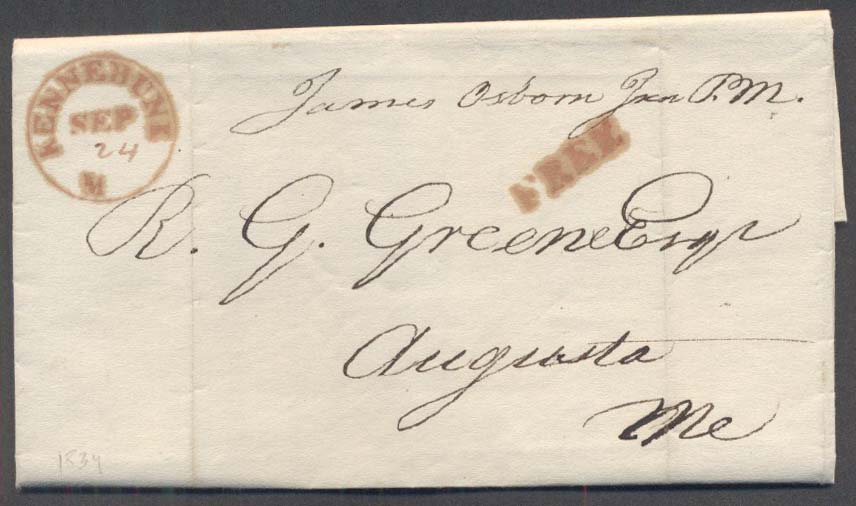 KENNEBUNK
SEP
24
M
James Osborn Jun P.M.
FREE
R. G. Greene Esqr
Augusta
Me
1834